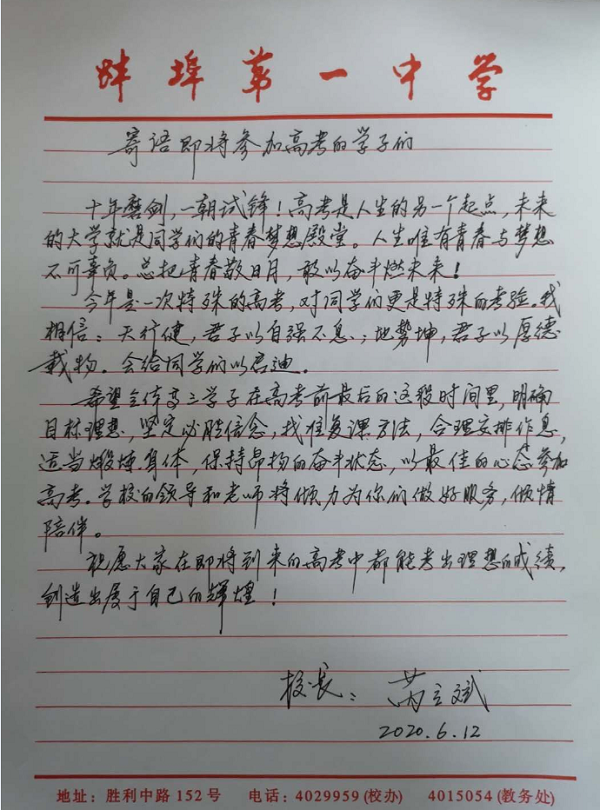 蚌埠第一中学
寄语即将参加高考的学子们
十年磨剑，一朝试锋！高考是人生的另一个起点，未来
的大学就是同学们的青春梦想殿堂。人生唯有青春与梦想
不可辜负。总把青春敬日月，敢以奋斗燃未来！
今年是一次特殊的高考，对同学们更是特殊的考验。我
相信：天行健，君子以自强不息；地势坤，君子以厚德
载物。会给同学们以启迪。
希望全体高三学子在高考前最后的这段时间里，明确
目标理想，坚定必胜信念，找准复课方法，合理安排作息，
适当煅炼身体，保持昂扬的奋斗状态，以最佳的心态参加
高考。学校的领导和老师将倾力为你们做好服务，倾情
陪伴。
祝愿大家在即将到来的高考中都能考出理想的成绩，
创造出属于自己的辉煌！
校长：芮立斌
2020.6.12
地址：胜利中路152号 电话：4029959(校办) 4015054(教务处)